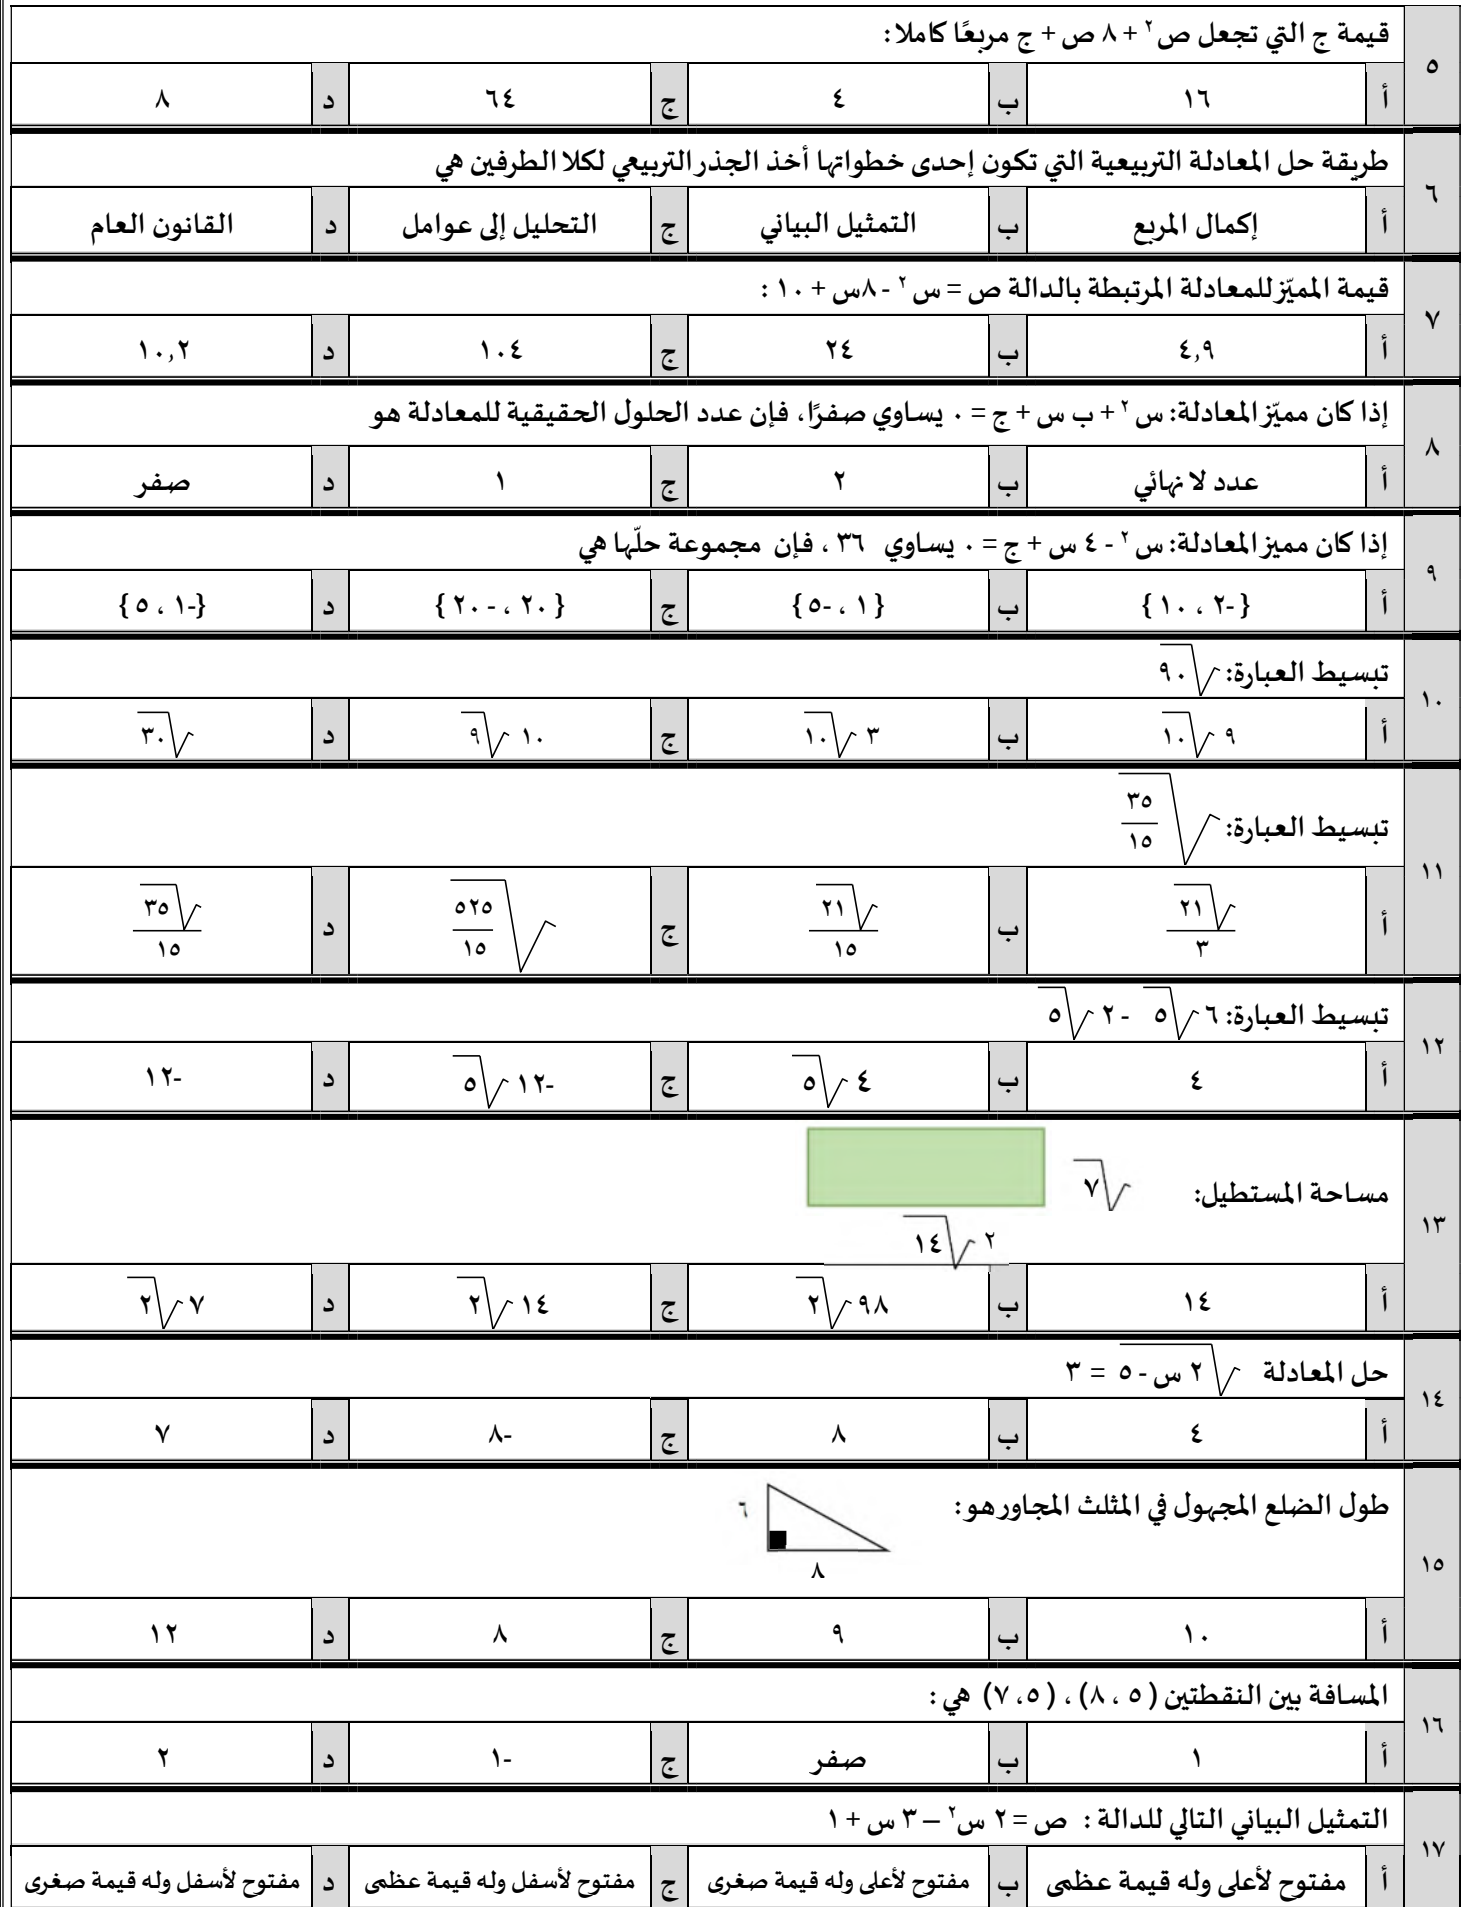 ٥ قيمة ج التي تجعل ص٢ + ٨ ص + ج مربعًا كاملا:
أ ١٦ ب ٤ ج ٦٤ د ٨
٦ طريقة حل المعادلة التربيعية التي تكون إحدى خطواتها أخذ الجذر التربيعي لكلا الطرفين هي
أ إكمال المربع ب التمثيل البياني ج التحليل إلى عوامل د القانون العام
٧ قيمة المميّز للمعادلة المرتبطة بالدالة ص = س٢ - ٨س + ١٠ :
أ ٤,٩ ب ٢٤ ج ١٠٤ د ١٠,٢
٨ إذا كان مميّز المعادلة: س٢ + ب س + ج = ٠ يساوي صفرًا، فإن عدد الحلول الحقيقية للمعادلة هو
أ عدد لا نهائي ب ٢ ج ١ د صفر
٩ إذا كان مميز المعادلة: س٢ - ٤ س + ج = ٠ يساوي ٣٦ ، فإن مجموعة حلّها هي
أ {-٢ ، ١٠ } ب { ١ ، -٥ } ج { ٢٠ ، -٢٠ } د {-١ ، ٥ }
١٠ تبسيط العبارة: √٩٠
أ ٩ √١٠ ب ٣ √١٠ ج ١٠ √٩ د √٣٠
١١ تبسيط العبارة: √(٣٥/١٥)
أ √٢١/٣ ب √٢١/١٥ ج √(٥٢٥/١٥) د √٣٥/١٥
١٢ تبسيط العبارة: ٦ √٥ - ٢ √٥
أ ٤ ب ٤ √٥ ج -١٢ √٥ د -١٢
١٣ مساحة المستطيل: √٧
٢ √١٤
أ ١٤ ب ٩٨ √٢ ج ١٤ √٢ د ٧ √٢
١٤ حل المعادلة √(٢ س - ٥) = ٣
أ ٤ ب ٨ ج -٨ د ٧
١٥ طول الضلع المجهول في المثلث المجاور هو: ٦
٨
أ ١٠ ب ٩ ج ٨ د ١٢
١٦ المسافة بين النقطتين ( ٥ ، ٨) ، ( ٥، ٧) هي :
أ ١ ب صفر ج -١ د ٢
١٧ التمثيل البياني التالي للدالة : ص = ٢ س٢ – ٣ س + ١
أ مفتوح لأعلى وله قيمة عظمى ب مفتوح لأعلى وله قيمة صغرى ج مفتوح لأسفل وله قيمة عظمى د مفتوح لأسفل وله قيمة صغرى